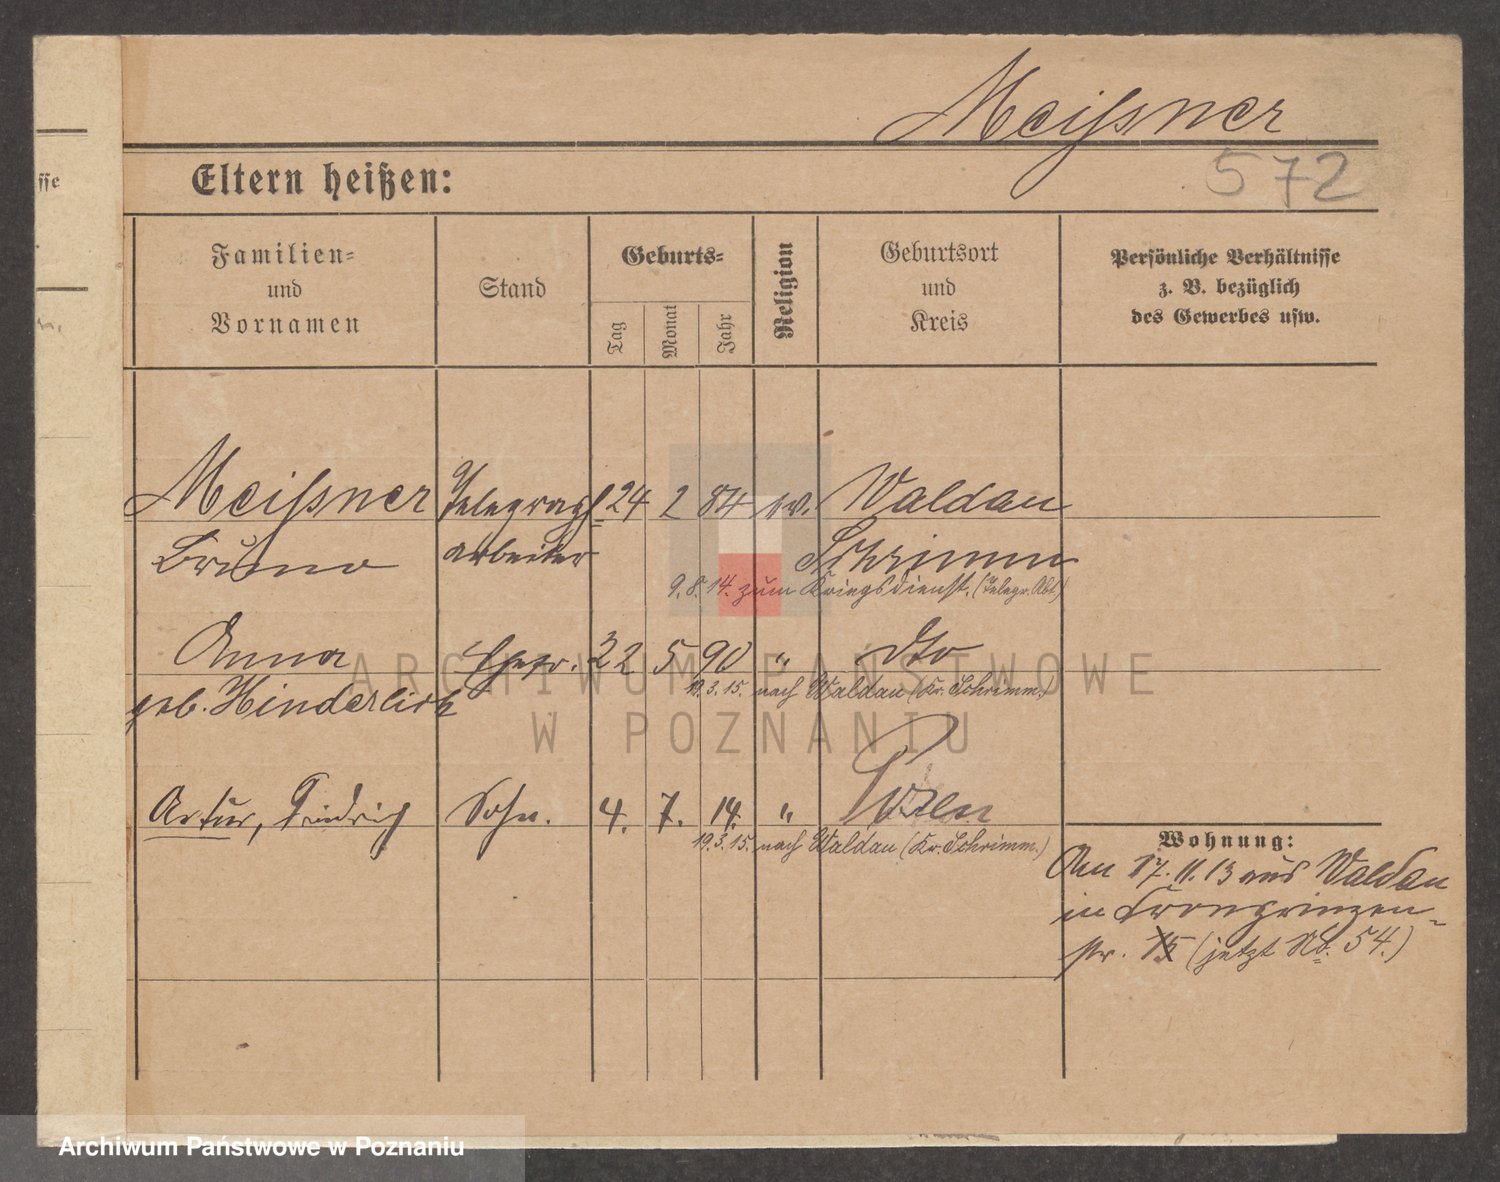 Meißner
572
Eltern heißen:
sse
Familien=
und
Vornamen
Stand
Geburts=
Tag
Monat
Jahr
Religion
Geburtsort
und
Kreis
Persönliche Verhältnisse
z. B. bezüglich
des Gewerbes usw.
Meißner Telegraph= 24 2 84 ev. Waldau
Bruno arbeiter Schrimm
9.8.14. zum Kriegsdienst. (Telegr. Abt.)
Anna Ehefr. 22 5 90 " dto
19.3.15. nach Waldau (Kr. Schrimm.)
geb. Hinderlich
Artur, Friedrich Sohn. 4. 7. 14. " Posen
19.3.15. nach Waldau (Kr. Schrimm.)
Wohnung:
Am 17.11.13 aus Waldau
in Kronprinzen=
str. 15 (jetzt No. 54.)
ARCHIWUM PAŃSTWOWE
W POZNANIU
Archiwum Państwowe w Poznaniu